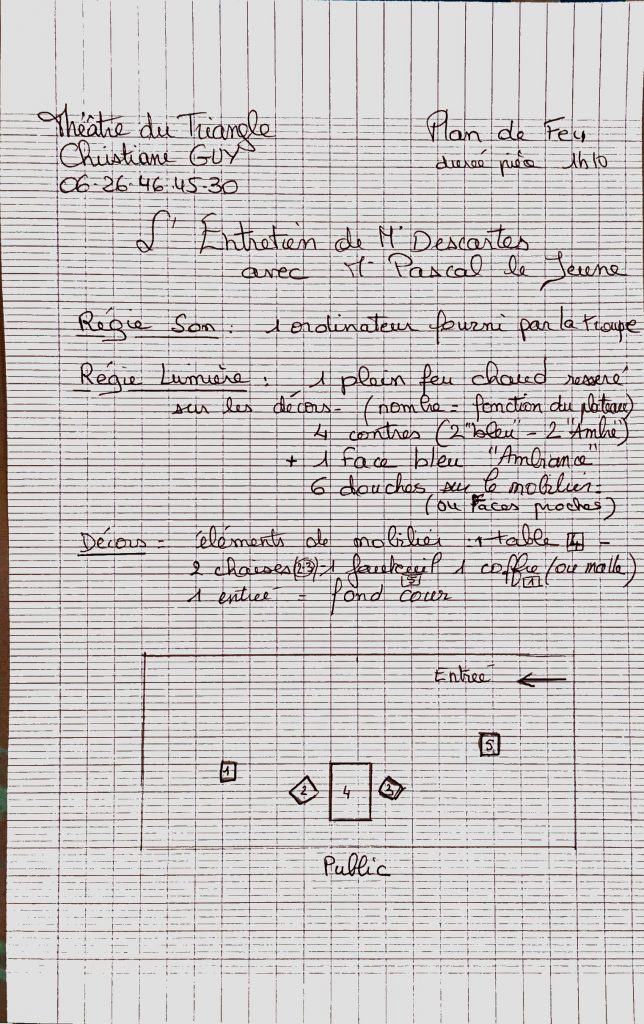 Théâtre du Triangle
Christiane GUY
06-26-46-45-30
Plan de Feu
durée pièce 1h10
L' Entretien de Mr Descartes
avec Mr Pascal le Jeune
Régie Son : 1 ordinateur fourni par la troupe
Régie Lumière : 1 plein feu chaud resseré
sur les décors - (nombre = fonction du plateau)
4 contres (2 "bleu" - 2 "Ambré")
+ 1 face bleu "Ambiance"
6 douches sur le mobilier -
(ou Faces proches)
Décors = éléments de mobilier : 1 table 4 -
2 chaises (2-3) = 1 fauteuil 5 1 coffre 1 (ou malle)
1 entrée = fond cour
Entrée
5
1
2
4
3
Public